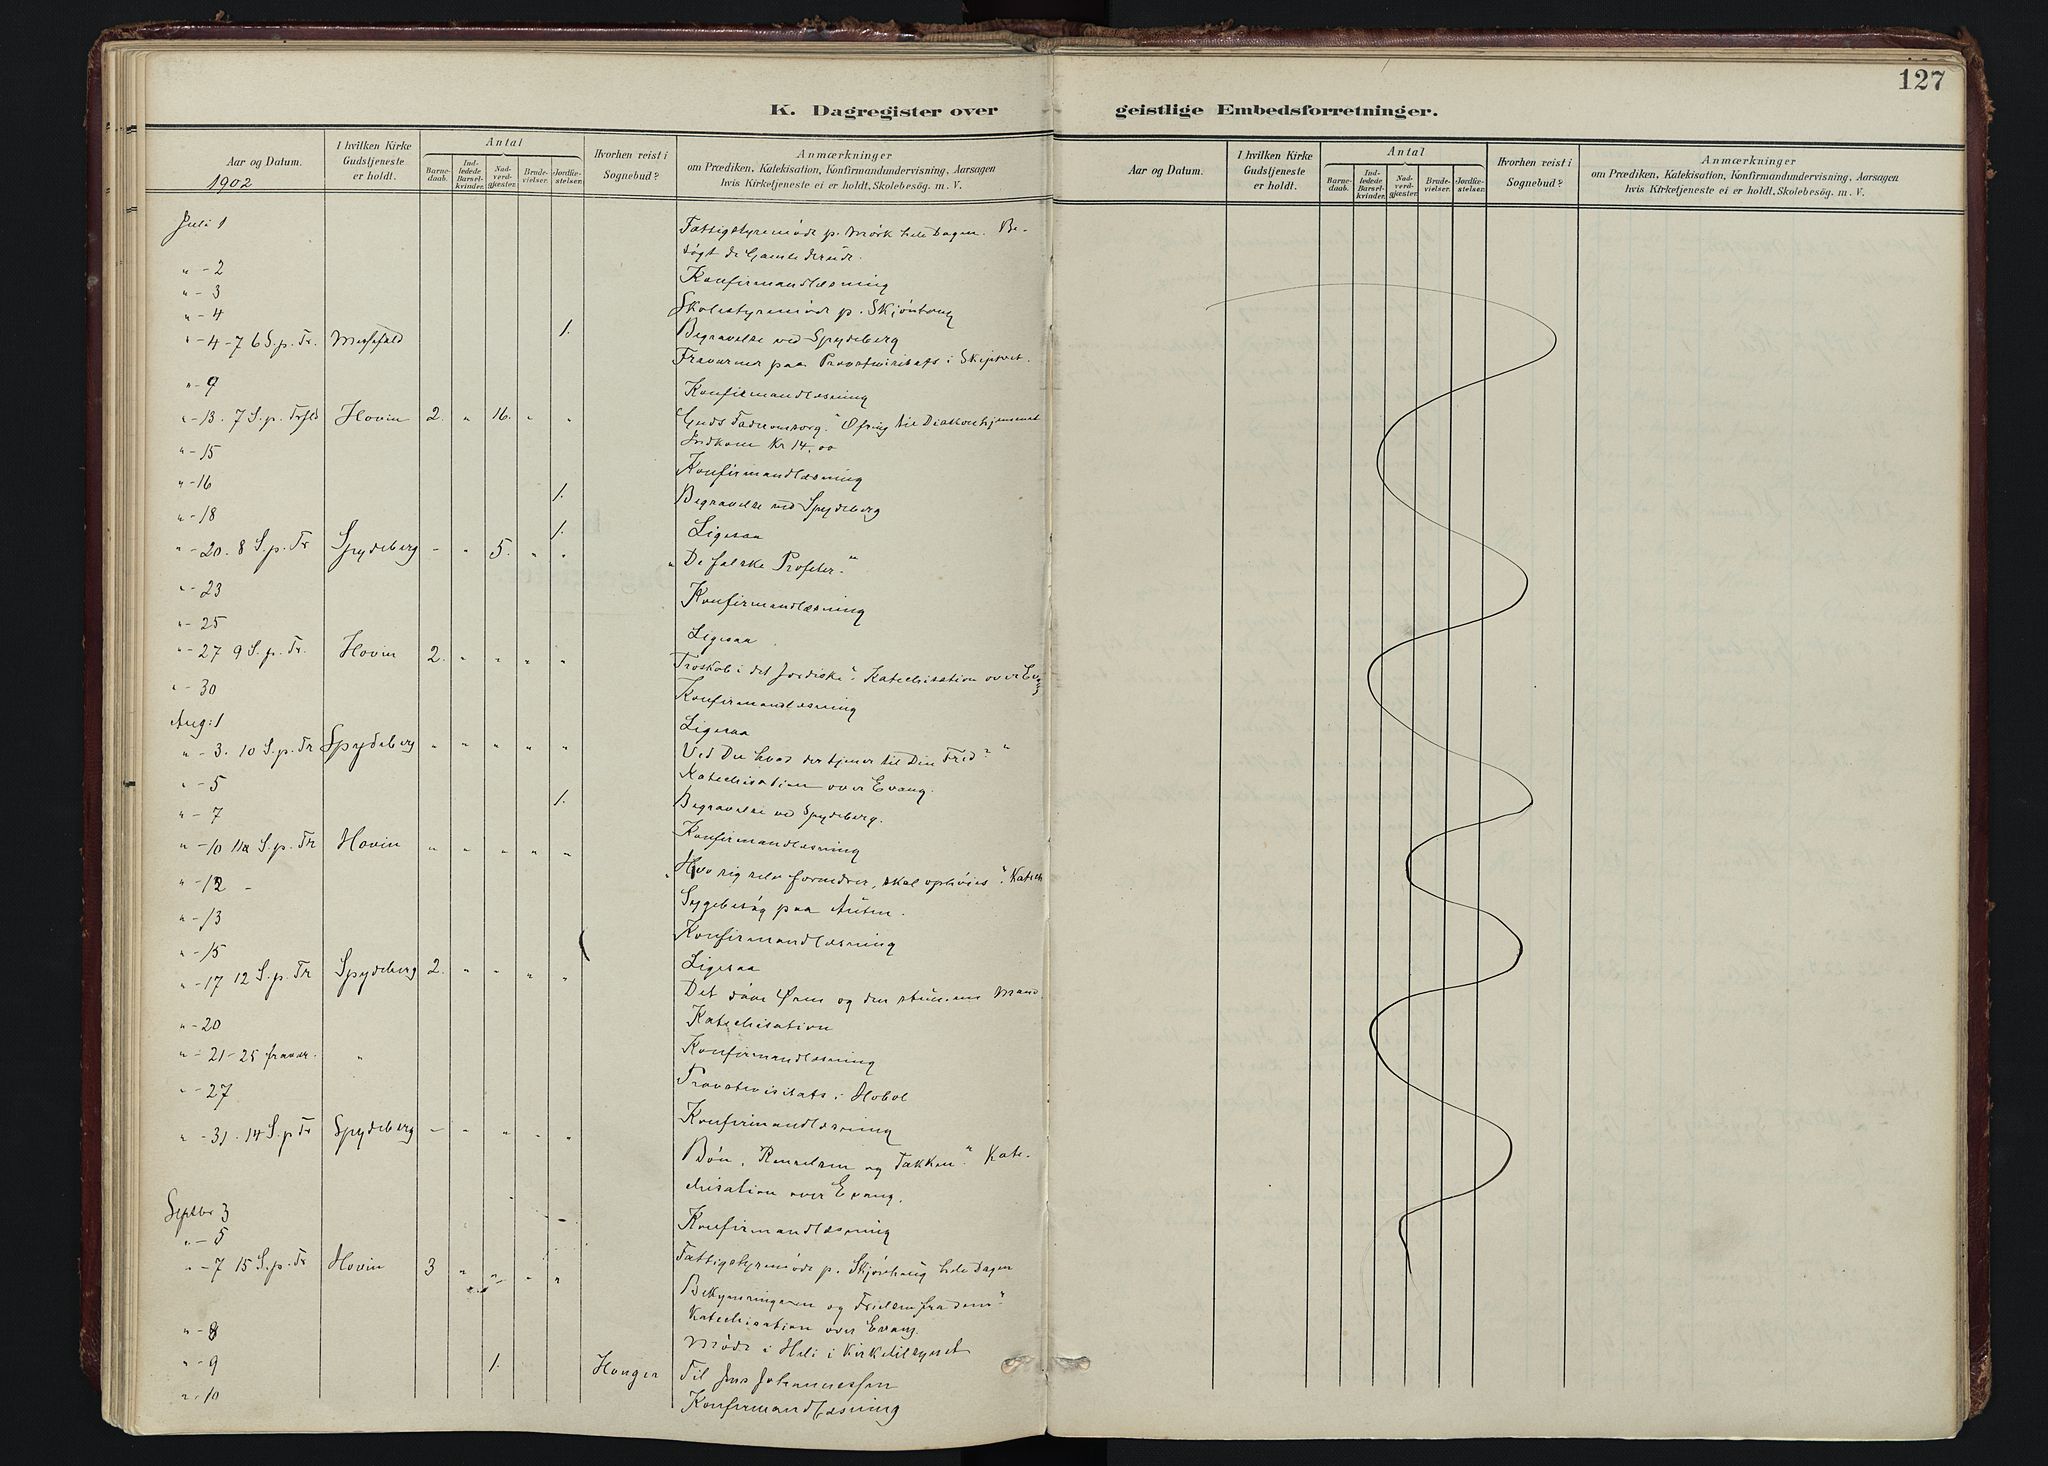 127
K. Dagregister over geistlige Embedsforretninger.
Aar og Datum. I hvilken Kirke Gudstjeneste er holdt. Antal Barnedaab. Indledede Barselkvinder. Nadverdgjester. Brudevielser. Jordfæstelser. Hvorhen reist i Sognebud? Anmærkninger om Prædiken, Katekisation, Konfirmandundervisning, Aarsagen hvis Kirketjeneste ei er holdt, Skolebesøg. m. V.
1902
Juli 1 Fattigstyremøde p. Mørk hele Dagen. Be-
søgt de Gamle derude.
" - 2 Konfirmandlæsning
" - 3 Skolestyremøde p.
" - 4 1. Begravelse ved Spydeberg
" - 4 - 7 6 S. p. Tr. Fravær paa Provstevisitats i Skiptvet.
" - 9 Konfirmandlæsning
" - 13. 7 S. p. Hovin 2. " 16. " " Guds Faderomsorg." Ofring til Diakonhjemmet
Indkom Kr 14,00
" - 15 Konfirmandlæsning
" - 16 1. Begravelse ved Spydeberg
" - 18 1. Ligesaa
" - 20. 8 S. p. Tr Spydeberg - " 5. " " "De falske Profeter."
" - 23 Konfirmandlæsning
" - 25 Ligesaa
" - 27 9 S. p. Tr. Hovin 2. " " " " Troskab i det Jordiske". Katechisation over Evang
" - 30 Konfirmandlæsning
Aug: 1 Ligesaa
" - 3. 10 S. p. Tr Spydeberg " " " " " Ved Du hvad der tjener til Din Fred?"
Katechisation over Evang.
" - 5 1. Begravelse ved Spydeberg.
" - 7 Konfirmandlæsning
" - 10 11te S. p. Tr Hovin " " " " " "Hvo sig selv fornedrer, skal ophøies". Katech
" - 12 - Sygebesøg paa
" - 13 Konfirmandlæsning
" - 15 Ligesaa
" - 17 12 S. p. Tr Spydeberg 2. " " " " Det døve Øre og den stumme Mund.
Katechisation
" - 20 Konfirmandlæsning
" - 21-25 fravær. " Provstevisitats i Hobøl
" - 27 Konfirmandlæsning
" - 31. 14 S. p. Tr Spydeberg - " " " " Bøn, Renselsen og Takken". Kate-
chisation over Evang.
Septbr 3 Konfirmandlæsning
" - 5 Fattigstyremøde p. Skjønhaug hele Dagen
" - 7 15 S. p. Tr Hovin 3 " " " " Bekymringen og Frielsen fra den"
Katechisation over Evang.
" - 8 Møde i Heli i Kirketilsynet
" - 9 1. Til Jens Johannessen
" - 10 Konfirmandlæsning
Aar og Datum. I hvilken Kirke Gudstjeneste er holdt. Antal Barnedaab. Indledede Barselkvinder. Nadverdgjester. Brudevielser. Jordfæstelser. Hvorhen reist i Sognebud? Anmærkninger om Prædiken, Katekisation, Konfirmandundervisning, Aarsagen hvis Kirketjeneste ei er holdt, Skolebesøg. m. V.